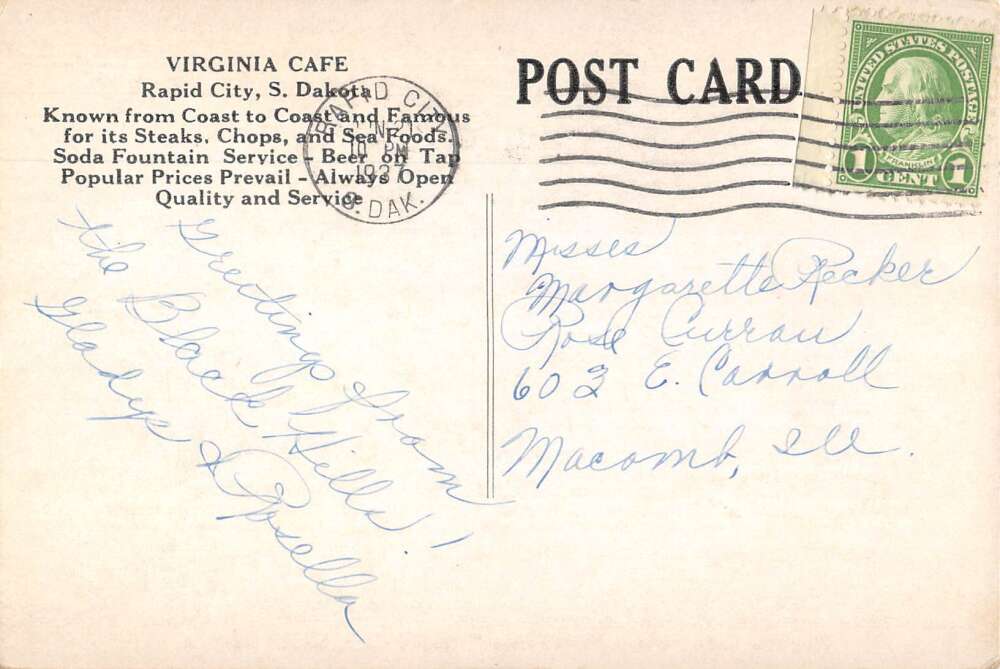 VIRGINIA CAFE
Rapid City, S. Dakota
Known from Coast to Coast and Famous
for its Steaks, Chops, and Sea Foods.
Soda Fountain Service - Beer on Tap
Popular Prices Prevail - Always Open
Quality and Service
POST CARD
RAPID CITY
10 PM
1937
S. DAK.
UNITED STATES POSTAGE
1 FRANKLIN 1
CENT
Greetings from
the Black Hills!
Gladys & Rosella
Misses
Margarette Recker
Rose Curran
603 E. Carroll
Macomb, Ill.